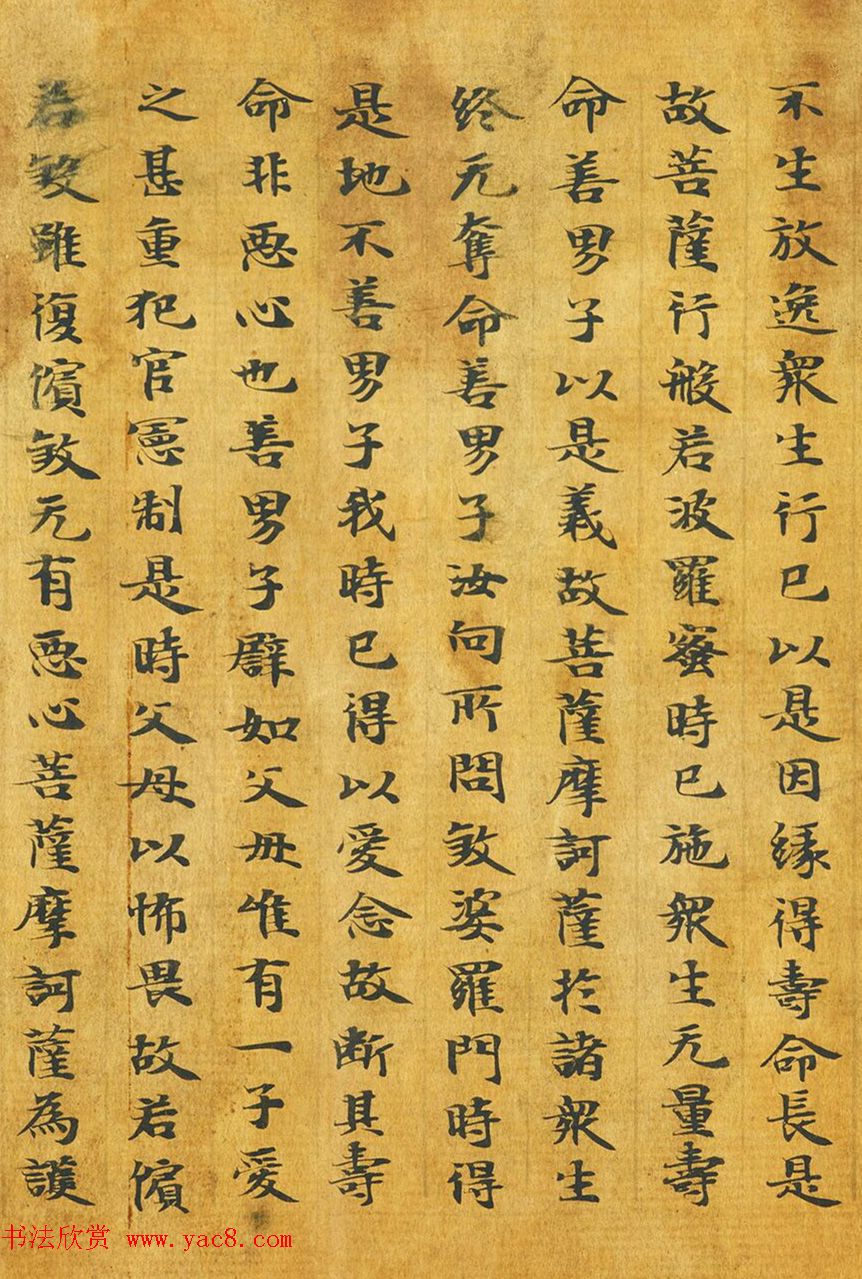 不生放逸衆生行已以是因緣得壽命長是
故菩薩行般若波羅蜜時已施衆生无量壽
命善男子以是義故菩薩摩訶薩於諸衆生
终无奪命善男子汝向所問敜婆羅門時得
是地不善男子我時已得以愛念故断其壽
命非惡心也善男子辟如父母唯有一子愛
之甚重犯官憲制是時父母以怖畏故若儐
若敜雖復儐敜无有惡心菩薩摩訶薩為護
书法欣赏 www.yac8.com